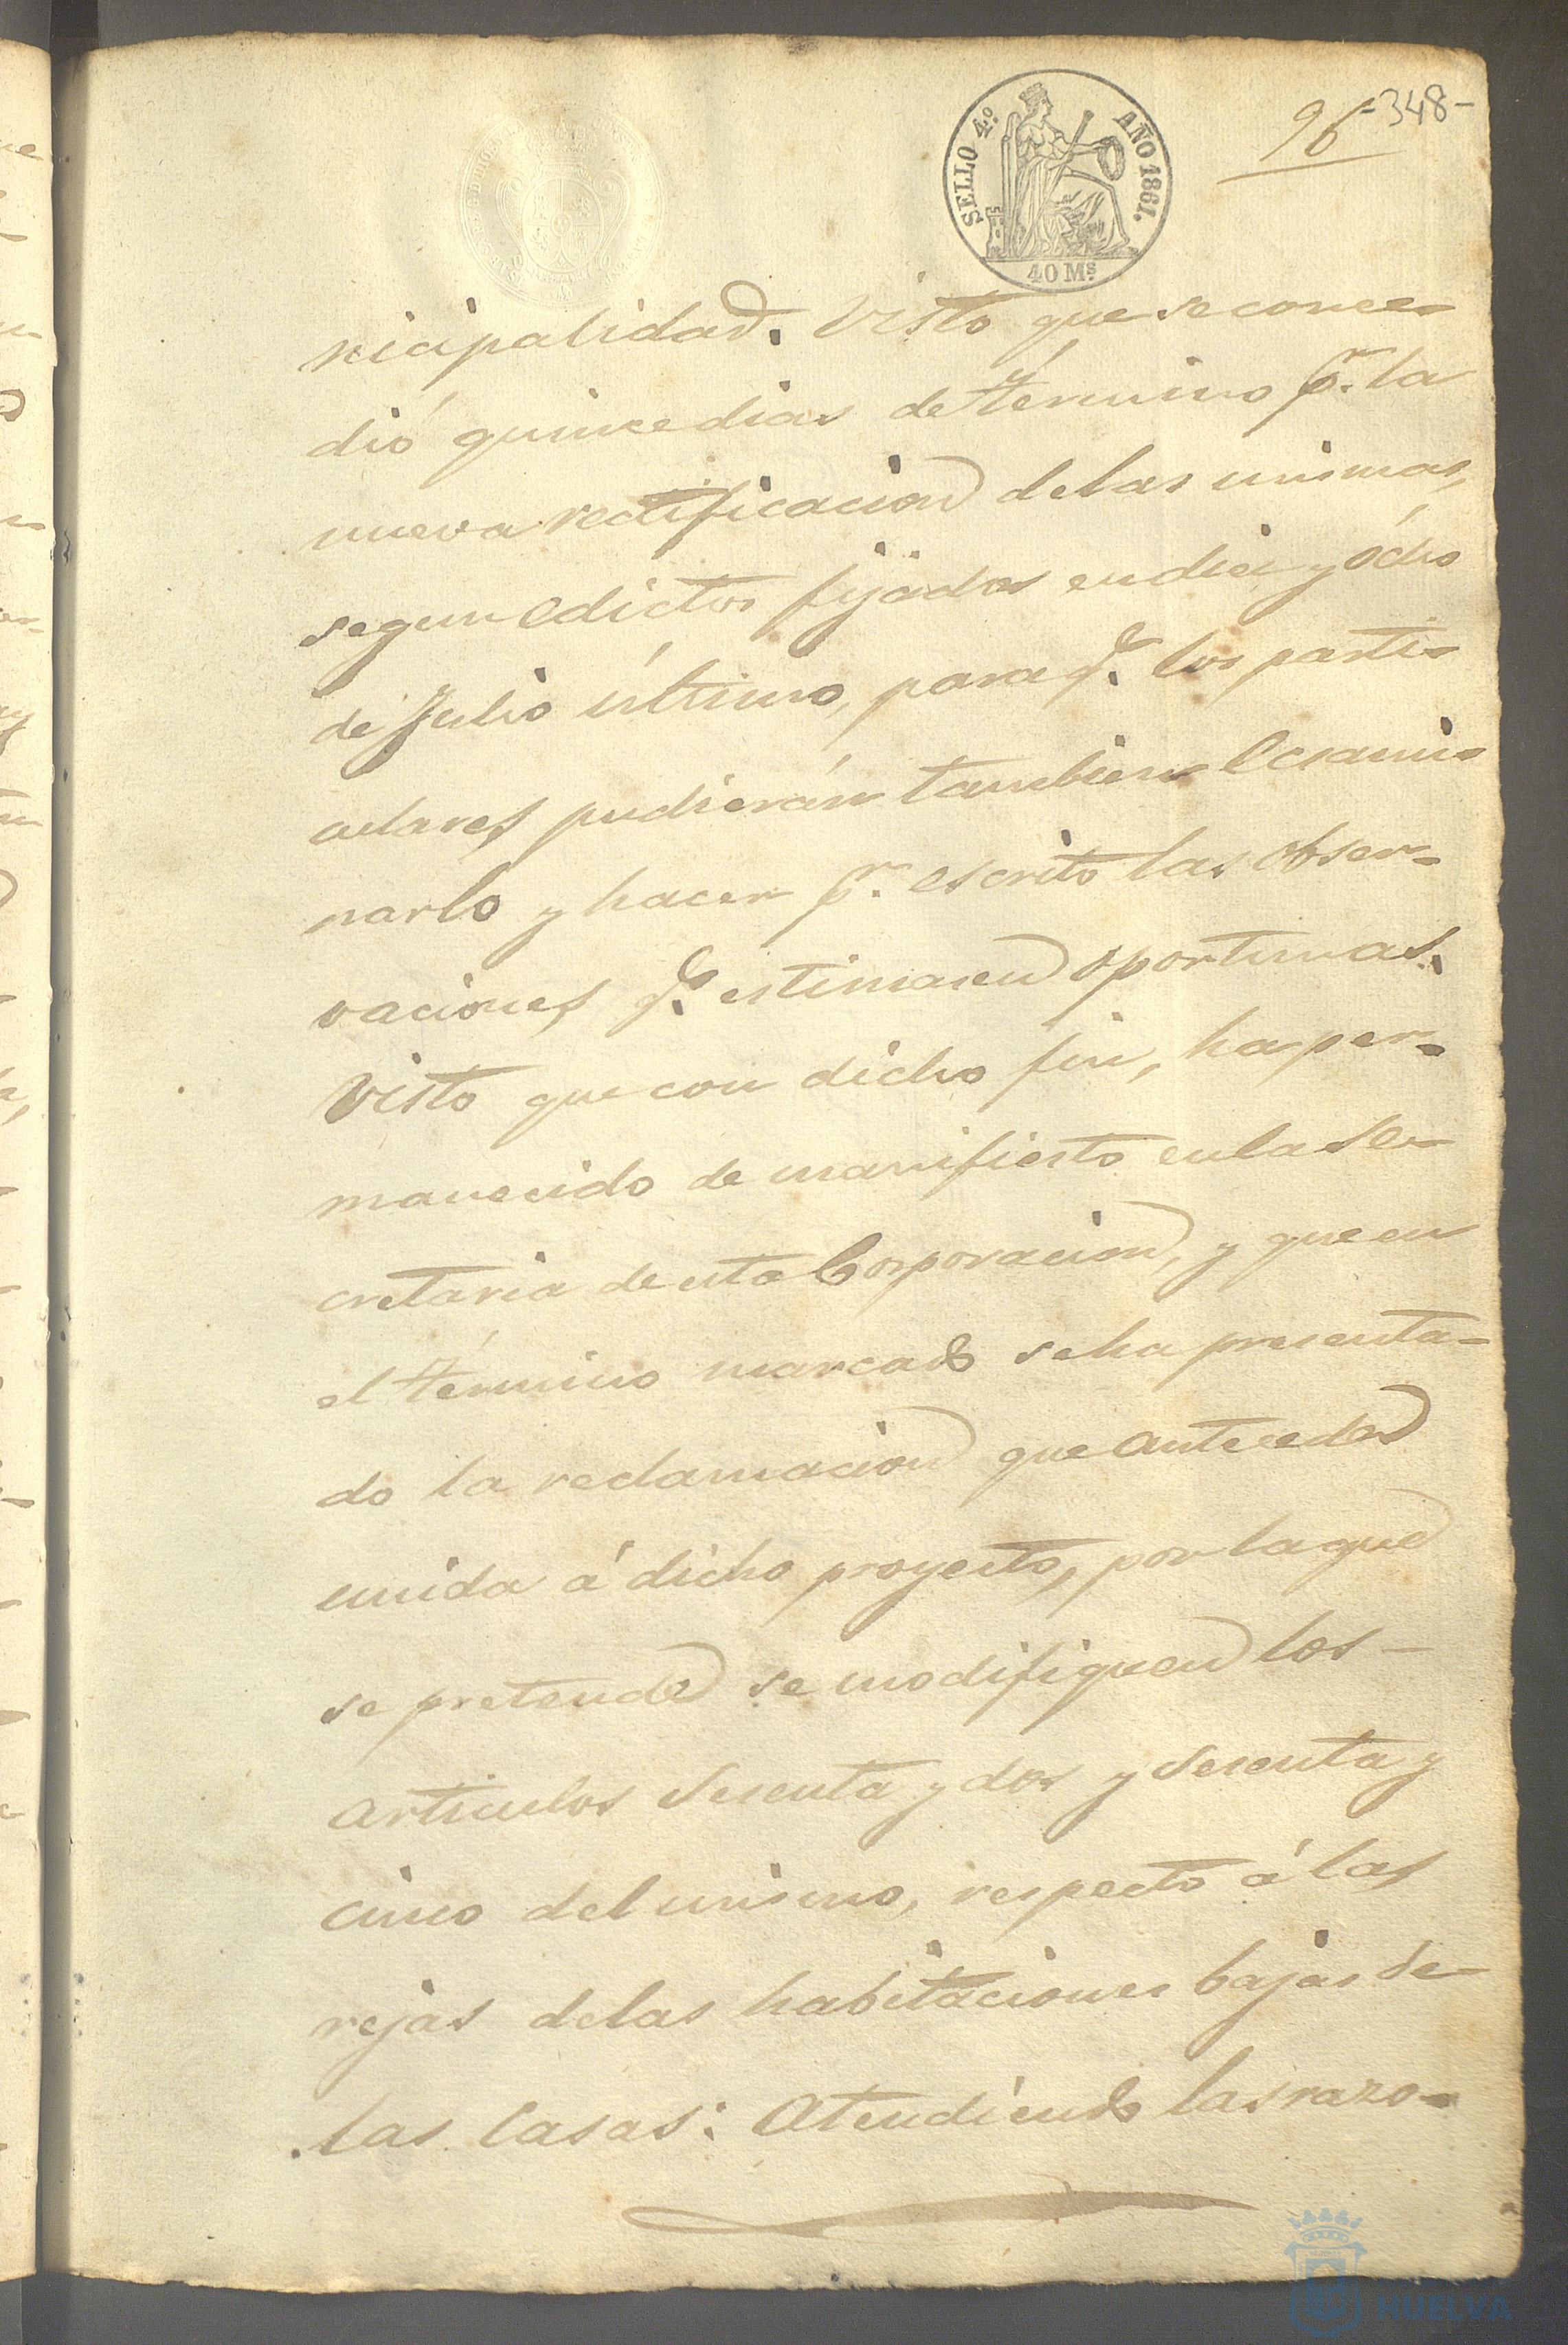 96 -348-
SELLO 4.º AÑO 1861.
40 Ms.
nicipalidad. Visto que se conce-
dió quince dias de término pr. la
nueva rectificacion de las mismas,
segun edictos fijados en diez y ócho
de Julio último, para q.e los parti-
culares pudierán tambien ecsami-
narlo y hacer pr. escrito las obser-
vaciones q.e estimasen oportunas.
Visto que con dicho fin, ha per-
manecido de manifiesto en la Se-
cretaria de esta Corporacion, y que en
el término marcado se ha presenta-
do la reclamacion que antecede
unida á dicho proyecto, por la que
se pretende se modifiquen los -
articulos Sesenta y dos y Sesenta y
cinco del mismo, respecto á las
rejas de las habitaciones bajas de
las Casas: Atendiendo las razo-
HUELVA